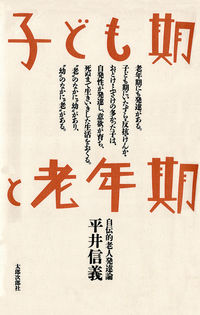 子ども期
と老年期
老年期にも発達がある。
子ども期にいたずら・反抗・けんか・
おどけ・ふざけの多かった子は、
自発性が発達し、意欲が育ち、
死ぬまで生きいきした生活をおくる。
“老”のなかに“幼”があり、
“幼”のなかに“老”がある。
自伝的老人発達論
平井信義
太郎次郎社